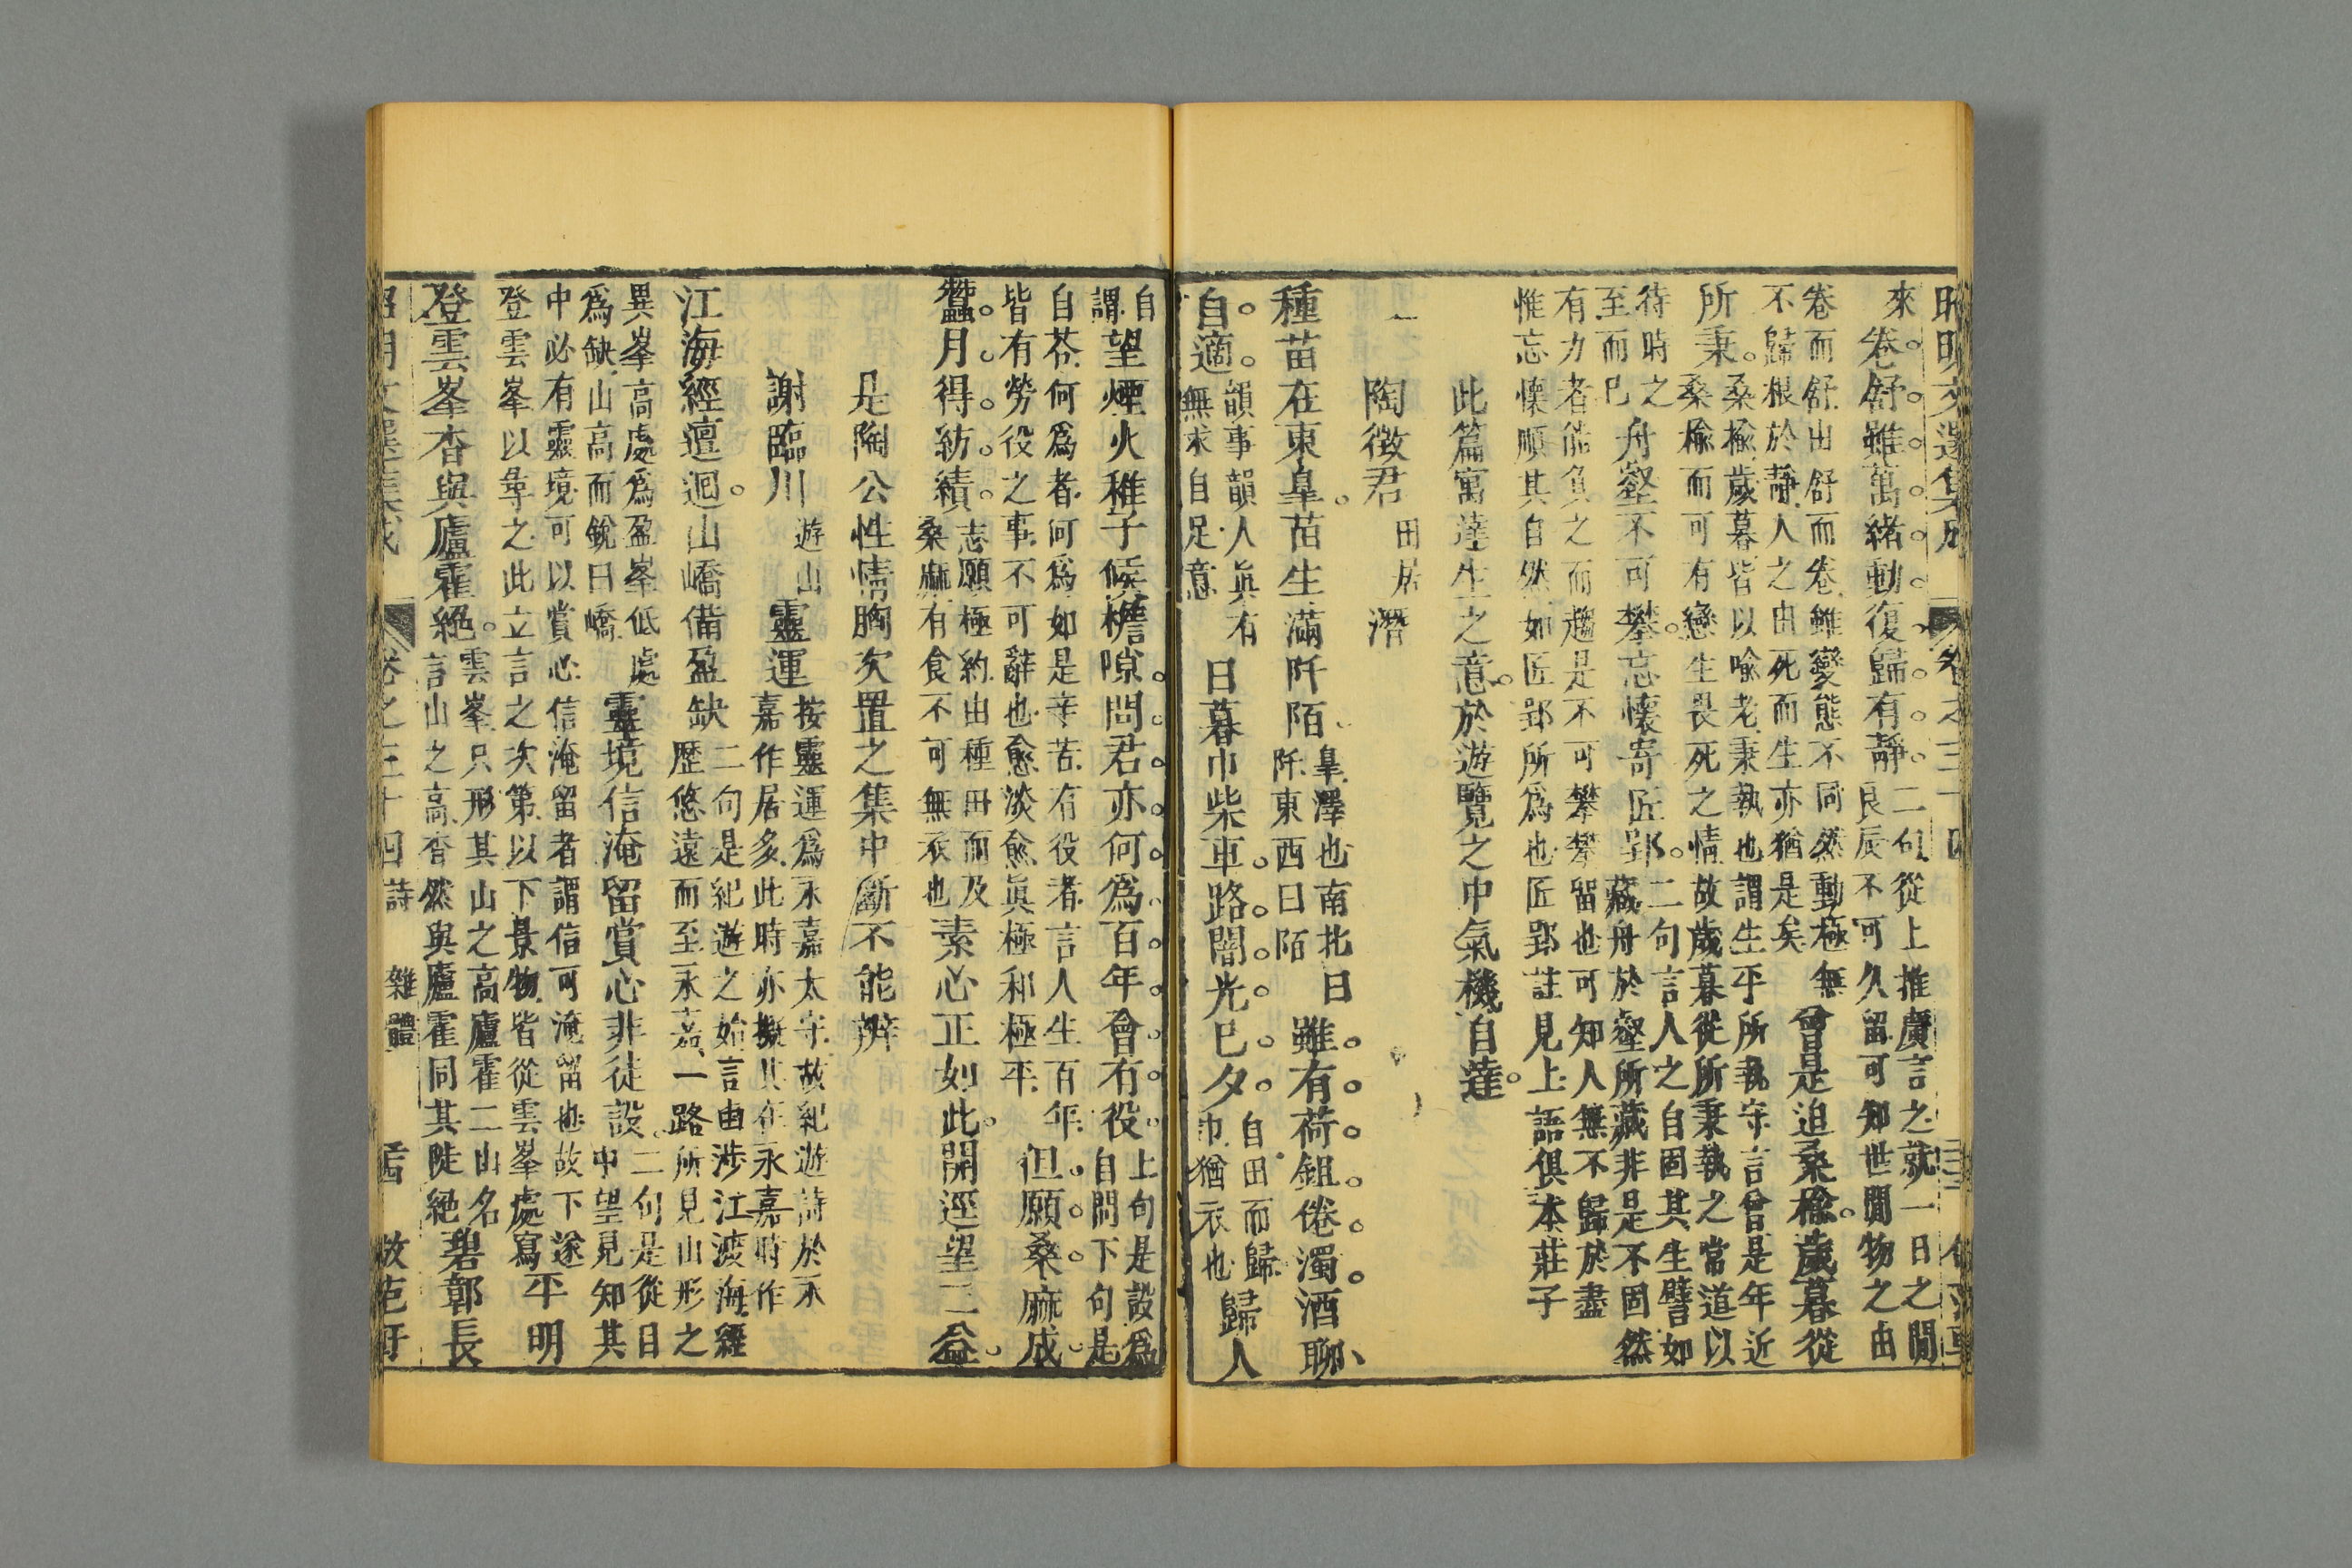 昭明文選集成 卷之三十四
來卷舒雖萬緒動復歸有靜二句從上推廣言之就一日之間良辰不可久留可知世間物之由
卷而舒由舒而卷雖變態不同然動極無不歸根於靜人之由死而生亦猶是矣曾是迫桑榆歲暮從
所秉桑榆歲暮皆以喻老秉執也謂生平所執守言曾是年近桑榆而可有戀生畏死之情故歲暮從所秉執之常道以
待時之至而已舟壑不可攀忘懷寄匠郢二句言人之自固其生譬如藏舟於壑所藏非是不固然
有力者能負之而趨是不可攀攀留也可知人無不歸於盡惟忘懷順其自然如匠郢所爲也匠郢註見上語俱本莊子
此篇寓達生之意於遊覽之中氣機自達
陶徵君田居潛
種苗在東皐苗生滿阡陌皐澤也南北曰阡東西曰陌雖有荷鉏倦濁酒聊
自適韻事韻人眞有無求自足意日暮巾柴車路闇光已夕自田而歸巾猶衣也歸人
望煙火稚子候檐隙問君亦何爲百年會有役上句是設爲自問下句是自謂
自荅何爲者何爲如是辛苦有役者言人生百年皆有勞役之事不可辭也愈淡愈眞極和極平但願桑麻成
蠶月得紡績志願極約由種田而及桑麻有食不可無衣也素心正如此開逕望三益
是陶公性情胸次置之集中斷不能辨
謝臨川遊山靈運按靈運爲永嘉太守故紀遊詩於永嘉作居多此時亦擬其在永嘉時作
江海經邅迴山嶠備盈缺二句是紀遊之始言由涉江渡海經歷悠遠而至永嘉一路所見山形之
異峯高處爲盈峯低處爲缺山高而銳曰嶠靈境信淹留賞心非徒設二句是從目中望見知其
中必有靈境可以賞心信淹留者謂信可淹留也故下遂登雲峯以尋之此立言之次第以下景物皆從雲峯處寫平明
登雲峯杳與廬霍絕雲峯只形其山之高廬霍二山名言山之高杳然與廬霍同其陡絕碧鄣長
昭明文選集成 卷之三十四詩 雜體